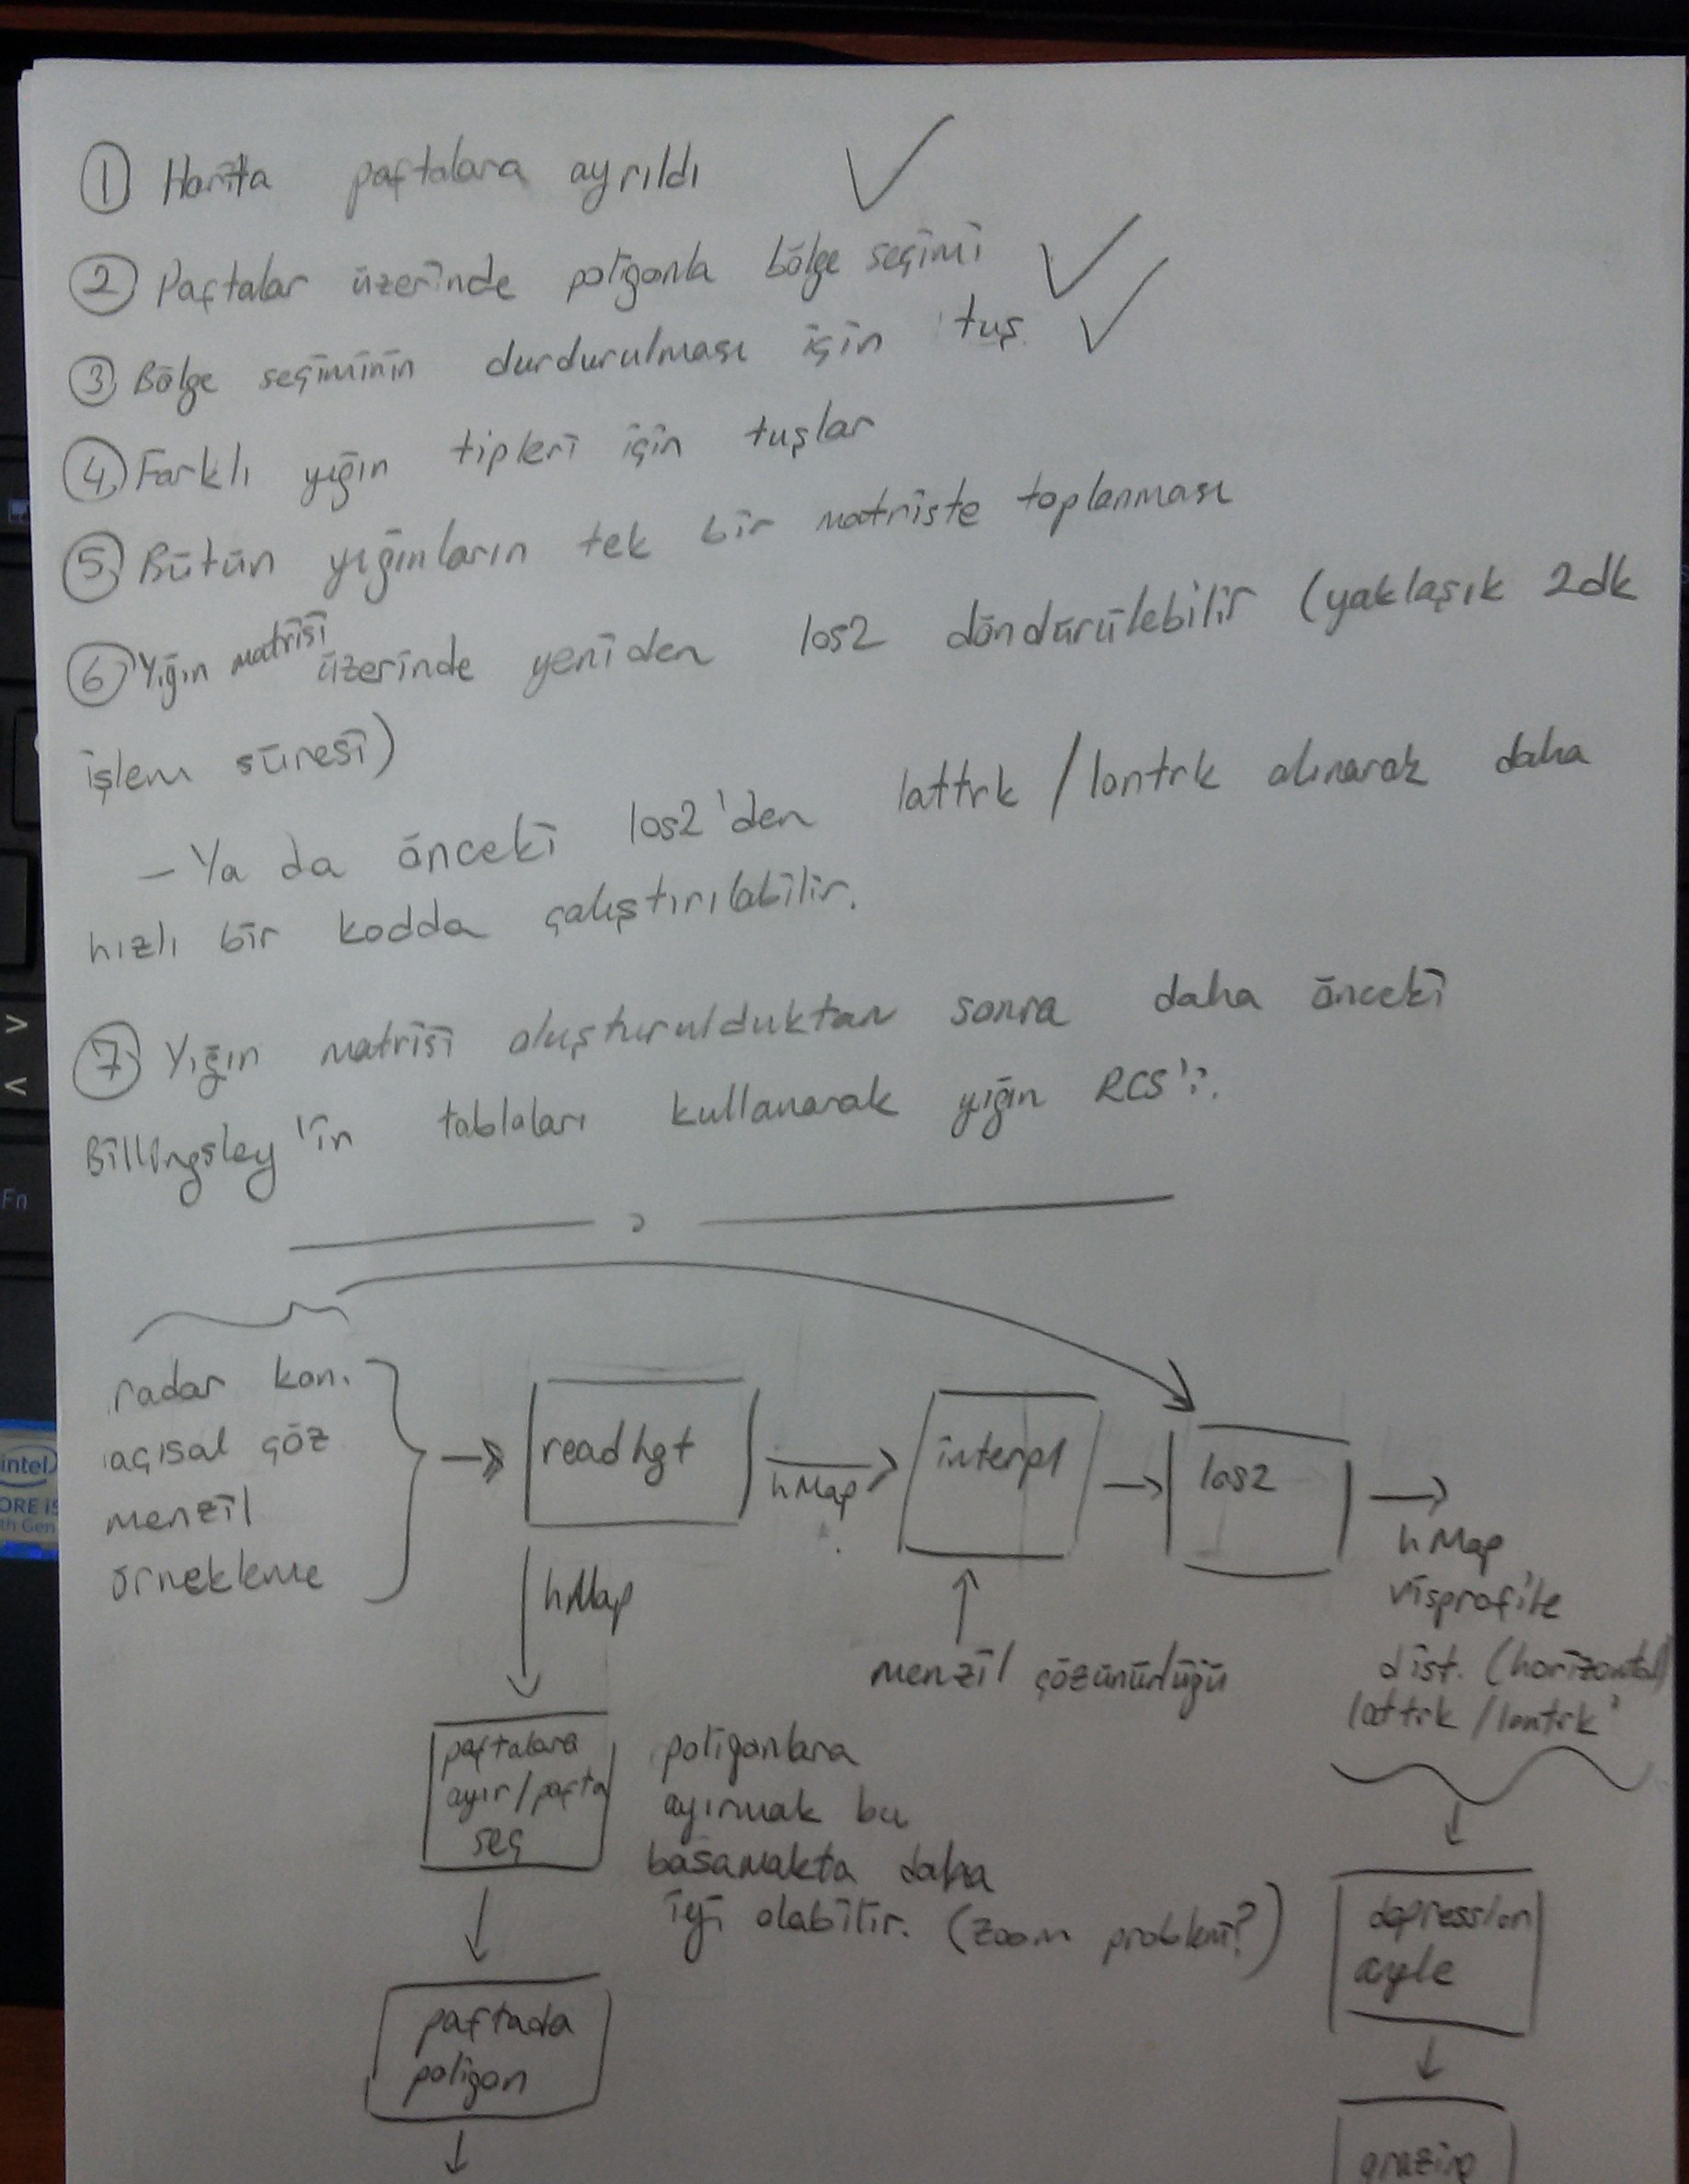 ① Harita paftalara ayrıldı ✓
② Paftalar üzerinde poligonla bölge seçimi ✓
③ Bölge seçiminin durdurulması için tuş ✓
④ Farklı yığın tipleri için tuşlar
⑤ Bütün yığınların tek bir matriste toplanması
⑥ Yığın matrisi üzerinde yeniden los2 döndürülebilir (yaklaşık 2dk
işlem süresi)
– Ya da önceki los2'den lattrk / lontrk alınarak daha
hızlı bir kodda çalıştırılabilir.
⑦ Yığın matrisi oluşturulduktan sonra daha önceki
Billingsley'in tabloları kullanarak yığın RCS'i.
radar kon.
açısal çöz
menzil
örnekleme
readhgt
hMap
interpl
los2
hMap
visprofile
dist. (horizontal)
lattrk / lontrk
hMap
menzil çözünürlüğü
paftalara
ayır / pafta
seç
poligonlara
ayırmak bu
basamakta daha
iyi olabilir. (zoom problemi?)
paftada
poligon
depression
angle
grazing
>
<
Fn
intel
CORE i5
th Gen